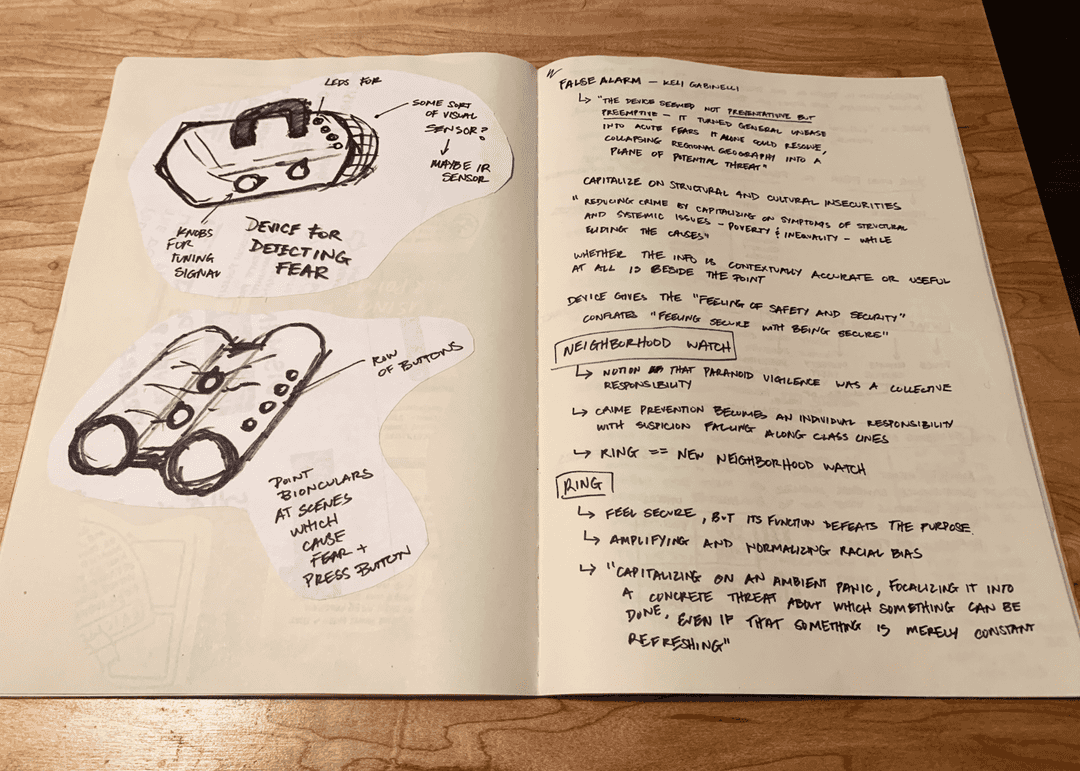 LEDS FOR
SOME SORT
OF VISUAL
SENSOR?
MAYBE IR
SENSOR
KNOBS
FOR
TUNING
SIGNAL
DEVICE FOR
DETECTING
FEAR
ROW
OF BUTTONS
POINT
BIONCULARS
AT SCENES
WHICH
CAUSE
FEAR +
PRESS BUTTON
FALSE ALARM – KELI GABINELLI
↳ "THE DEVICE SEEMED NOT PREVENTATIVE BUT
PREEMPTIVE – IT TURNED GENERAL UNEASE
INTO ACUTE FEARS IT ALONE COULD RESOLVE,
COLLAPSING REGIONAL GEOGRAPHY INTO A
PLANE OF POTENTIAL THREAT"
CAPITALIZE ON STRUCTURAL AND CULTURAL INSECURITIES
" REDUCING CRIME BY CAPITALIZING ON SYMPTOMS OF STRUCTURAL
AND SYSTEMIC ISSUES – POVERTY & INEQUALITY – WHILE
ELIDING THE CAUSES"
WHETHER THE INFO IS CONTEXTUALLY ACCURATE OR USEFUL
AT ALL IS BESIDE THE POINT
DEVICE GIVES THE "FEELING OF SAFETY AND SECURITY"
CONFLATES "FEELING SECURE WITH BEING SECURE"
NEIGHBORHOOD WATCH
↳ NOTION THAT PARANOID VIGILENCE WAS A COLLECTIVE
RESPONSIBILITY
↳ CRIME PREVENTION BECOMES AN INDIVIDUAL RESPONSIBILITY
WITH SUSPICION FALLING ALONG CLASS LINES
↳ RING == NEW NEIGHBORHOOD WATCH
RING
↳ FEEL SECURE, BUT ITS FUNCTION DEFEATS THE PURPOSE.
↳ AMPLIFYING AND NORMALIZING RACIAL BIAS
↳ "CAPITALIZING ON AN AMBIENT PANIC, FOCALIZING IT INTO
A CONCRETE THREAT ABOUT WHICH SOMETHING CAN BE
DONE, EVEN IF THAT SOMETHING IS MERELY CONSTANT
REFRESHING"